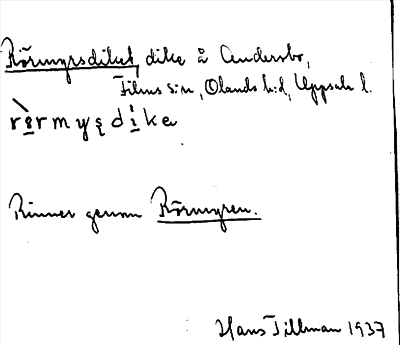 Rörmyrsdiket, dike å Andersbo,
Films s:n, Olands h:d, Uppsala l.
rörmyṣdikə
Rinner genom Rörmyren.
Hans Tillman 1937